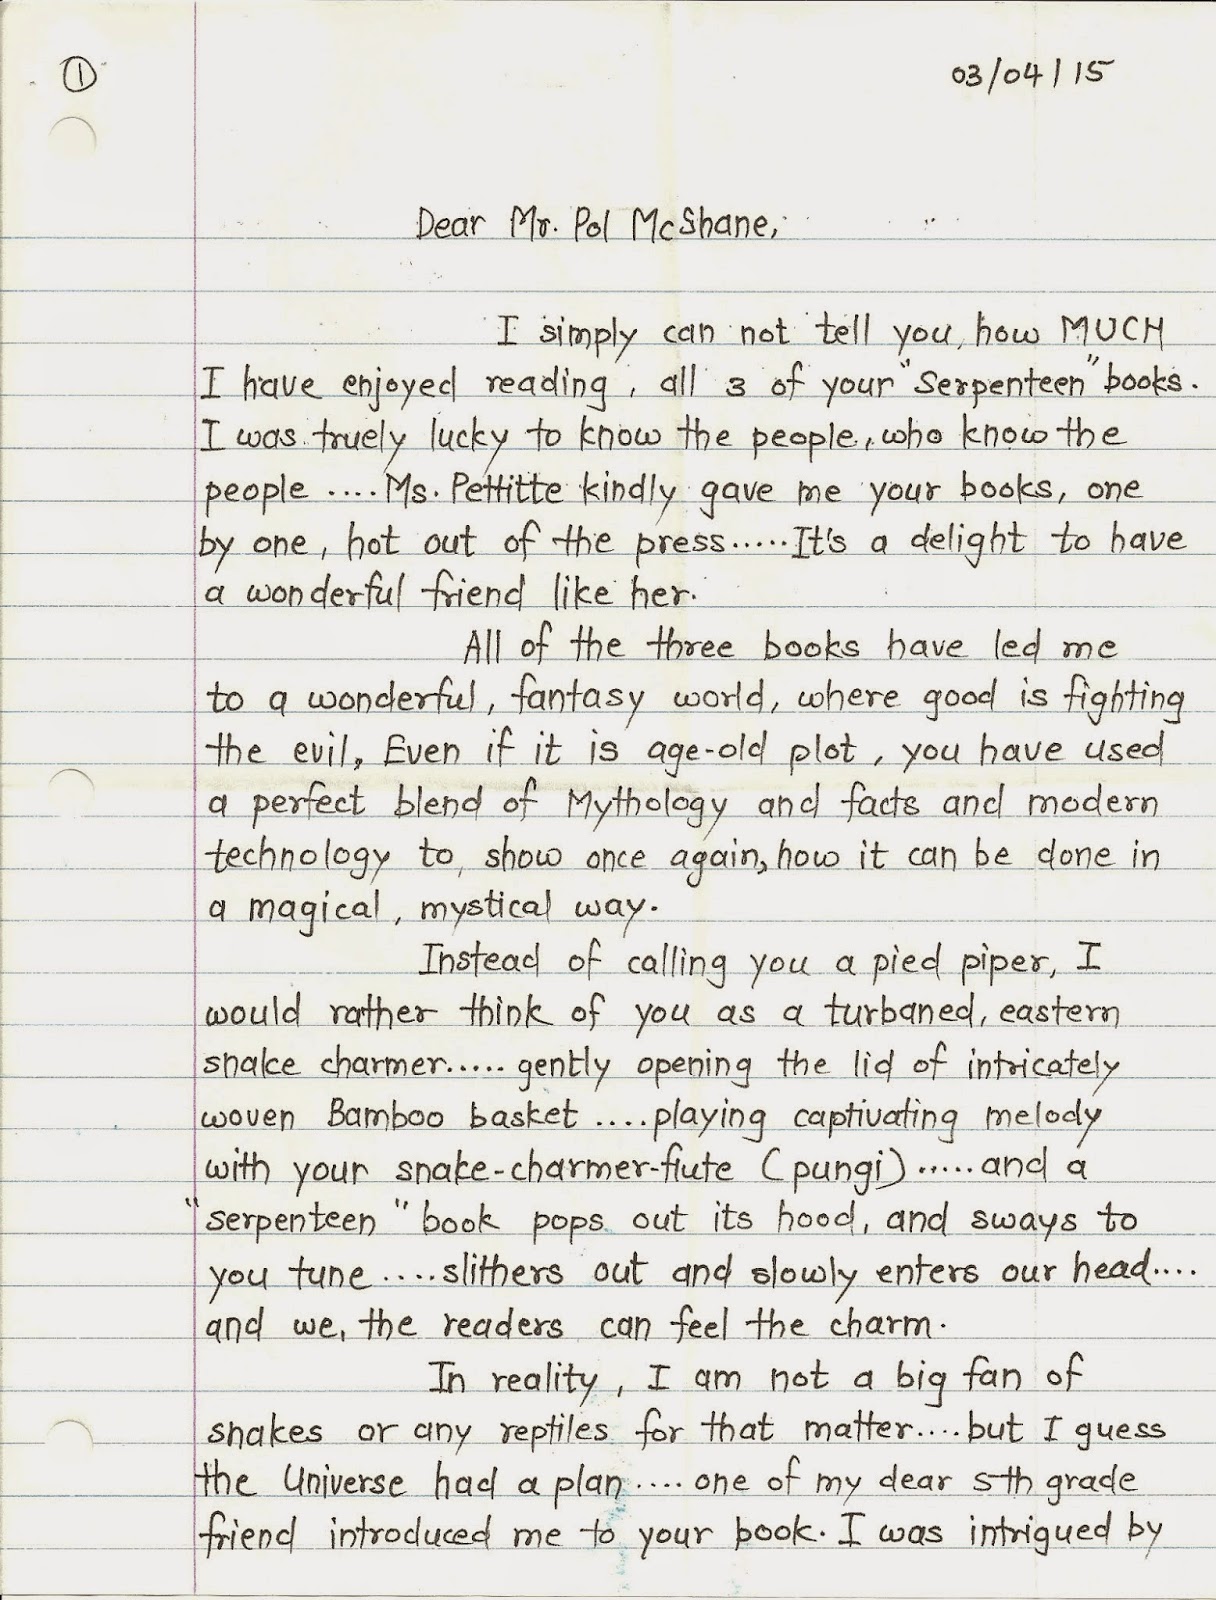 ① 03/04/15
Dear Mr. Pol McShane,
I simply can not tell you, how MUCH
I have enjoyed reading, all 3 of your "Serpenteen" books.
I was truely lucky to know the people, who know the
people .... Ms. Pettitte kindly gave me your books, one
by one, hot out of the press..... It's a delight to have
a wonderful friend like her.
All of the three books have led me
to a wonderful, fantasy world, where good is fighting
the evil. Even if it is age-old plot, you have used
a perfect blend of Mythology and facts and modern
technology to, show once again, how it can be done in
a magical, mystical way.
Instead of calling you a pied piper, I
would rather think of you as a turbaned, eastern
snake charmer..... gently opening the lid of intricately
woven Bamboo basket .... playing captivating melody
with your snake-charmer-flute (pungi) ..... and a
"serpenteen" book pops out its hood, and sways to
you tune .... slithers out and slowly enters our head....
and we, the readers can feel the charm.
In reality, I am not a big fan of
snakes or any reptiles for that matter.... but I guess
the Universe had a plan .... one of my dear 5th grade
friend introduced me to your book. I was intrigued by